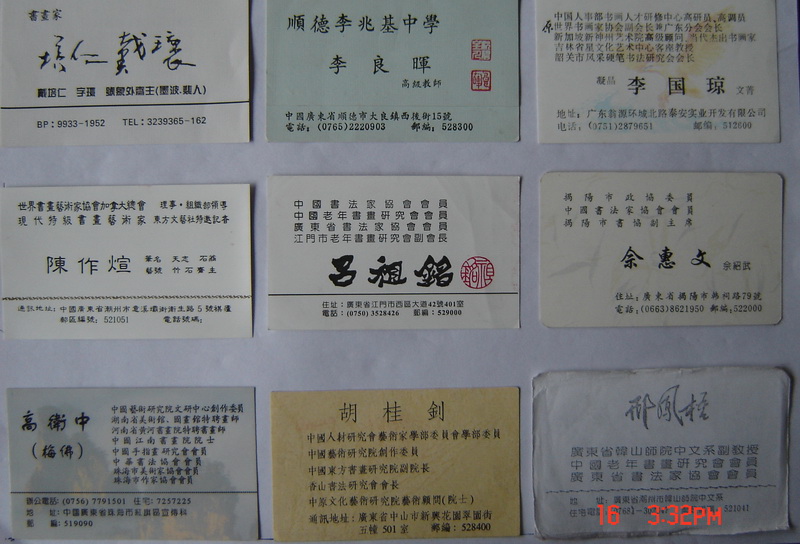 書畫家
培仁戴瓌
戴培仁 字瓌
BP：9933-1952 TEL：3239365-162
順德李兆基中學
李良暉
高級教師
中國廣東省順德市大良鎮西後街15號
電話：(0765)2220903 郵編：528300
中国人事部书画人才研修中心高研员、高调员
世界书画家协会副会长兼广东分会会长
新加坡新神州艺术院高级顾问、当代杰出书画家
吉林省星文化艺术中心客座教授
韶关市风采硬笔书法研究会会长
李国琼
地址：广东翁源环城北路泰安实业开发有限公司
电话：(0751)2879651 邮编：512600
世界書畫藝術家協會加拿大總會 理事·組織部領導
現代特級書畫藝術家 東方文藝社特邀記者
陳作煊
筆名 天志 石磊
藝號 竹石齋主
郵區編號：521051 電話號碼：
中國書法家協會會員
中國老年書畫研究會會員
廣東省書法家協會會員
江門市老年書畫研究會副會長
呂祖銘
住址：廣東省江門市西區大道42號401室
電話：(0750) 3528426 郵編：529000
揭陽市政協委員
中國書法家協會會員
揭陽市書協副主席
余惠文
住址：廣東省揭陽市韩祠路79號
電話：(0663)8621950 郵編：522000
高衛中
（梅佛）
中國藝術研究院文研中心創作委員
湖南省美術館、圖畫館特聘畫師
河南省黃河書畫院特聘畫師
中國江南書畫院院士
中國手指畫研究會會員
中華書法會會員
珠海市美術家協會會員
珠海市作家協會會員
辦公電話：(0756) 7791501 住宅：7257225
郵 編：519090
胡桂釗
中國人材研究會藝術家學部委員會學部委員
中國藝術研究院創作委員
中國東方書畫研究院副院長
香山書法研究會會長
中原文化藝術研究院藝術顧問(院士)
通訊地址：廣東省中山市新興花園翠園街
五幢 501室 郵編：528400
邢鳳梧
廣東省韓山師院中文系副教授
中國老年書畫研究會會員
廣東省書法家協會會員
地 址：廣東省潮州市韓山師院中文系
521041
16 3:32PM